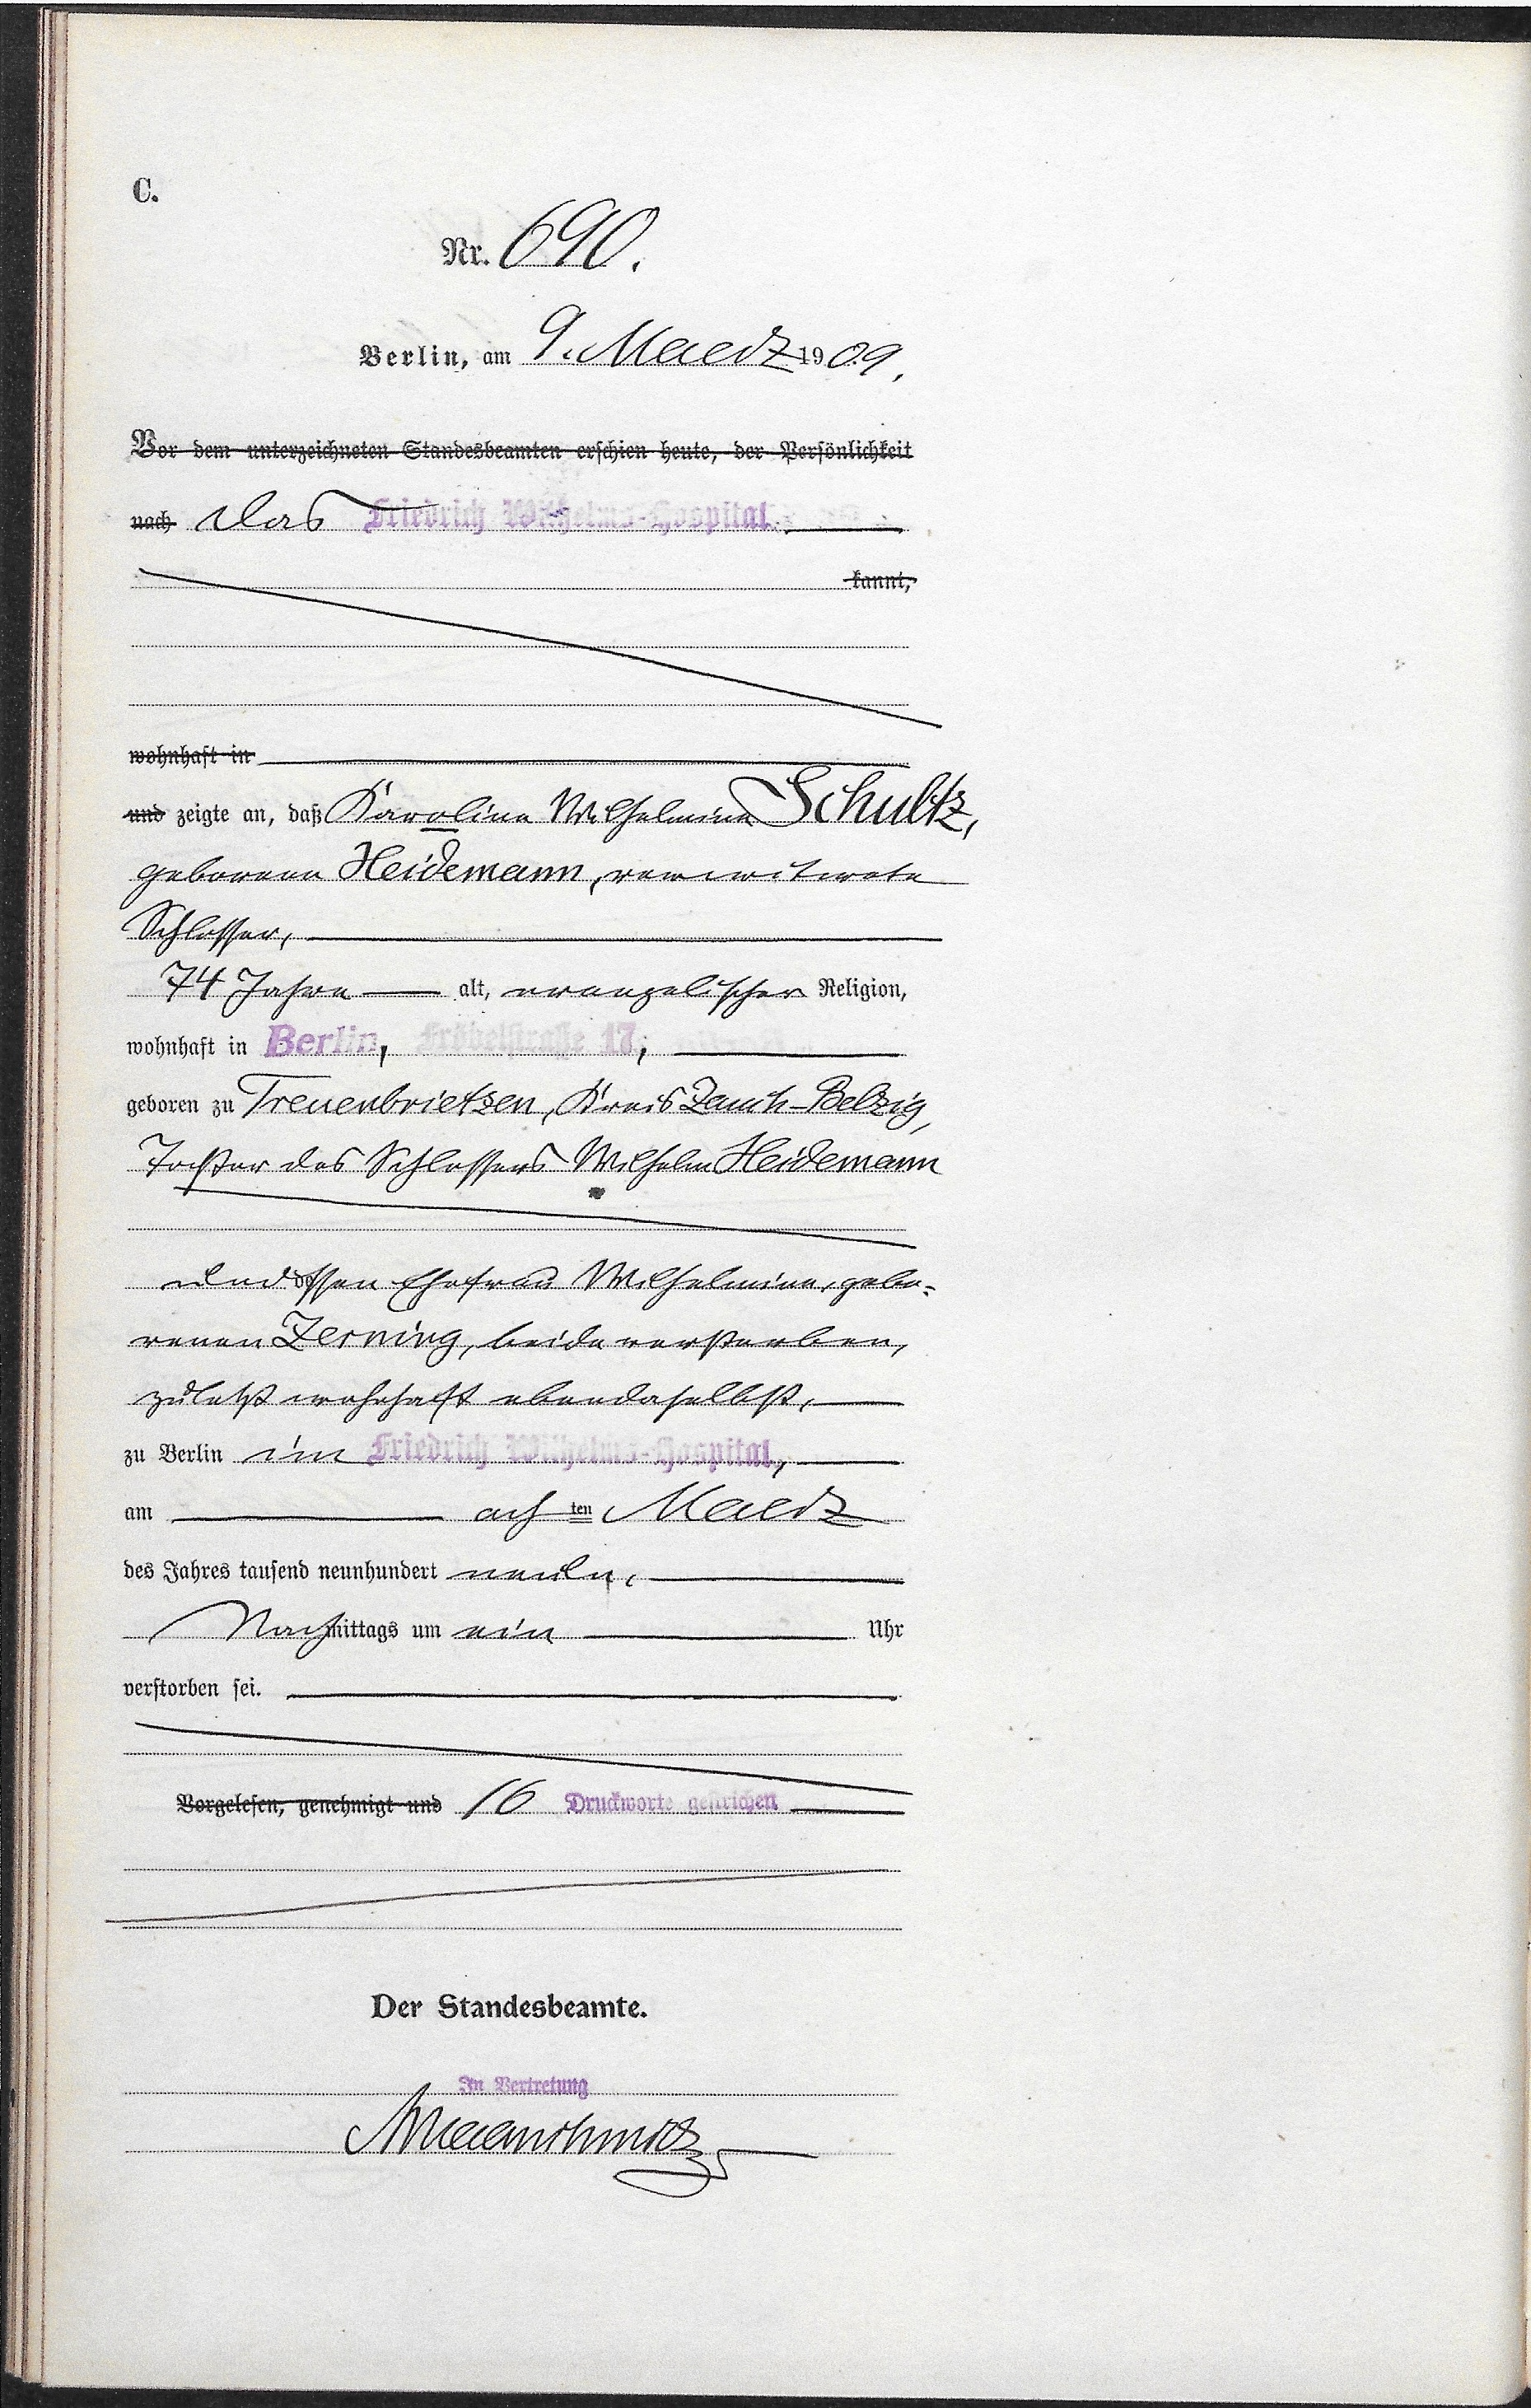 C.
Nr. 690.
Berlin, am 9. Maerz 1909.
Vor dem unterzeichneten Standesbeamten erschien heute, der Persönlichkeit
nach das Friedrich Wilhelms-Hospital
kannt,
wohnhaft in
und zeigte an, daß Karoline Wilhelmine Schultz,
geborene Heidemann, verwitwete
Schlosser,
74 Jahre alt, evangelischer Religion,
wohnhaft in Berlin, Fröbelstraße 17,
geboren zu Treuenbrietzen, Kreis Zauch-Belzig,
Tochter des Schlossers Wilhelm Heidemann
und dessen Ehefrau Wilhelmine, gebo-
renen Zerning, beide verstorben,
zuletzt wohnhaft ebendaselbst,
zu Berlin im Friedrich Wilhelms-Hospital,
am achten Maerz
des Jahres tausend neunhundert neun,
Nachmittags um ein Uhr
verstorben sei.
Vorgelesen, genehmigt und 16 Druckworte gestrichen
Der Standesbeamte.
In Vertretung